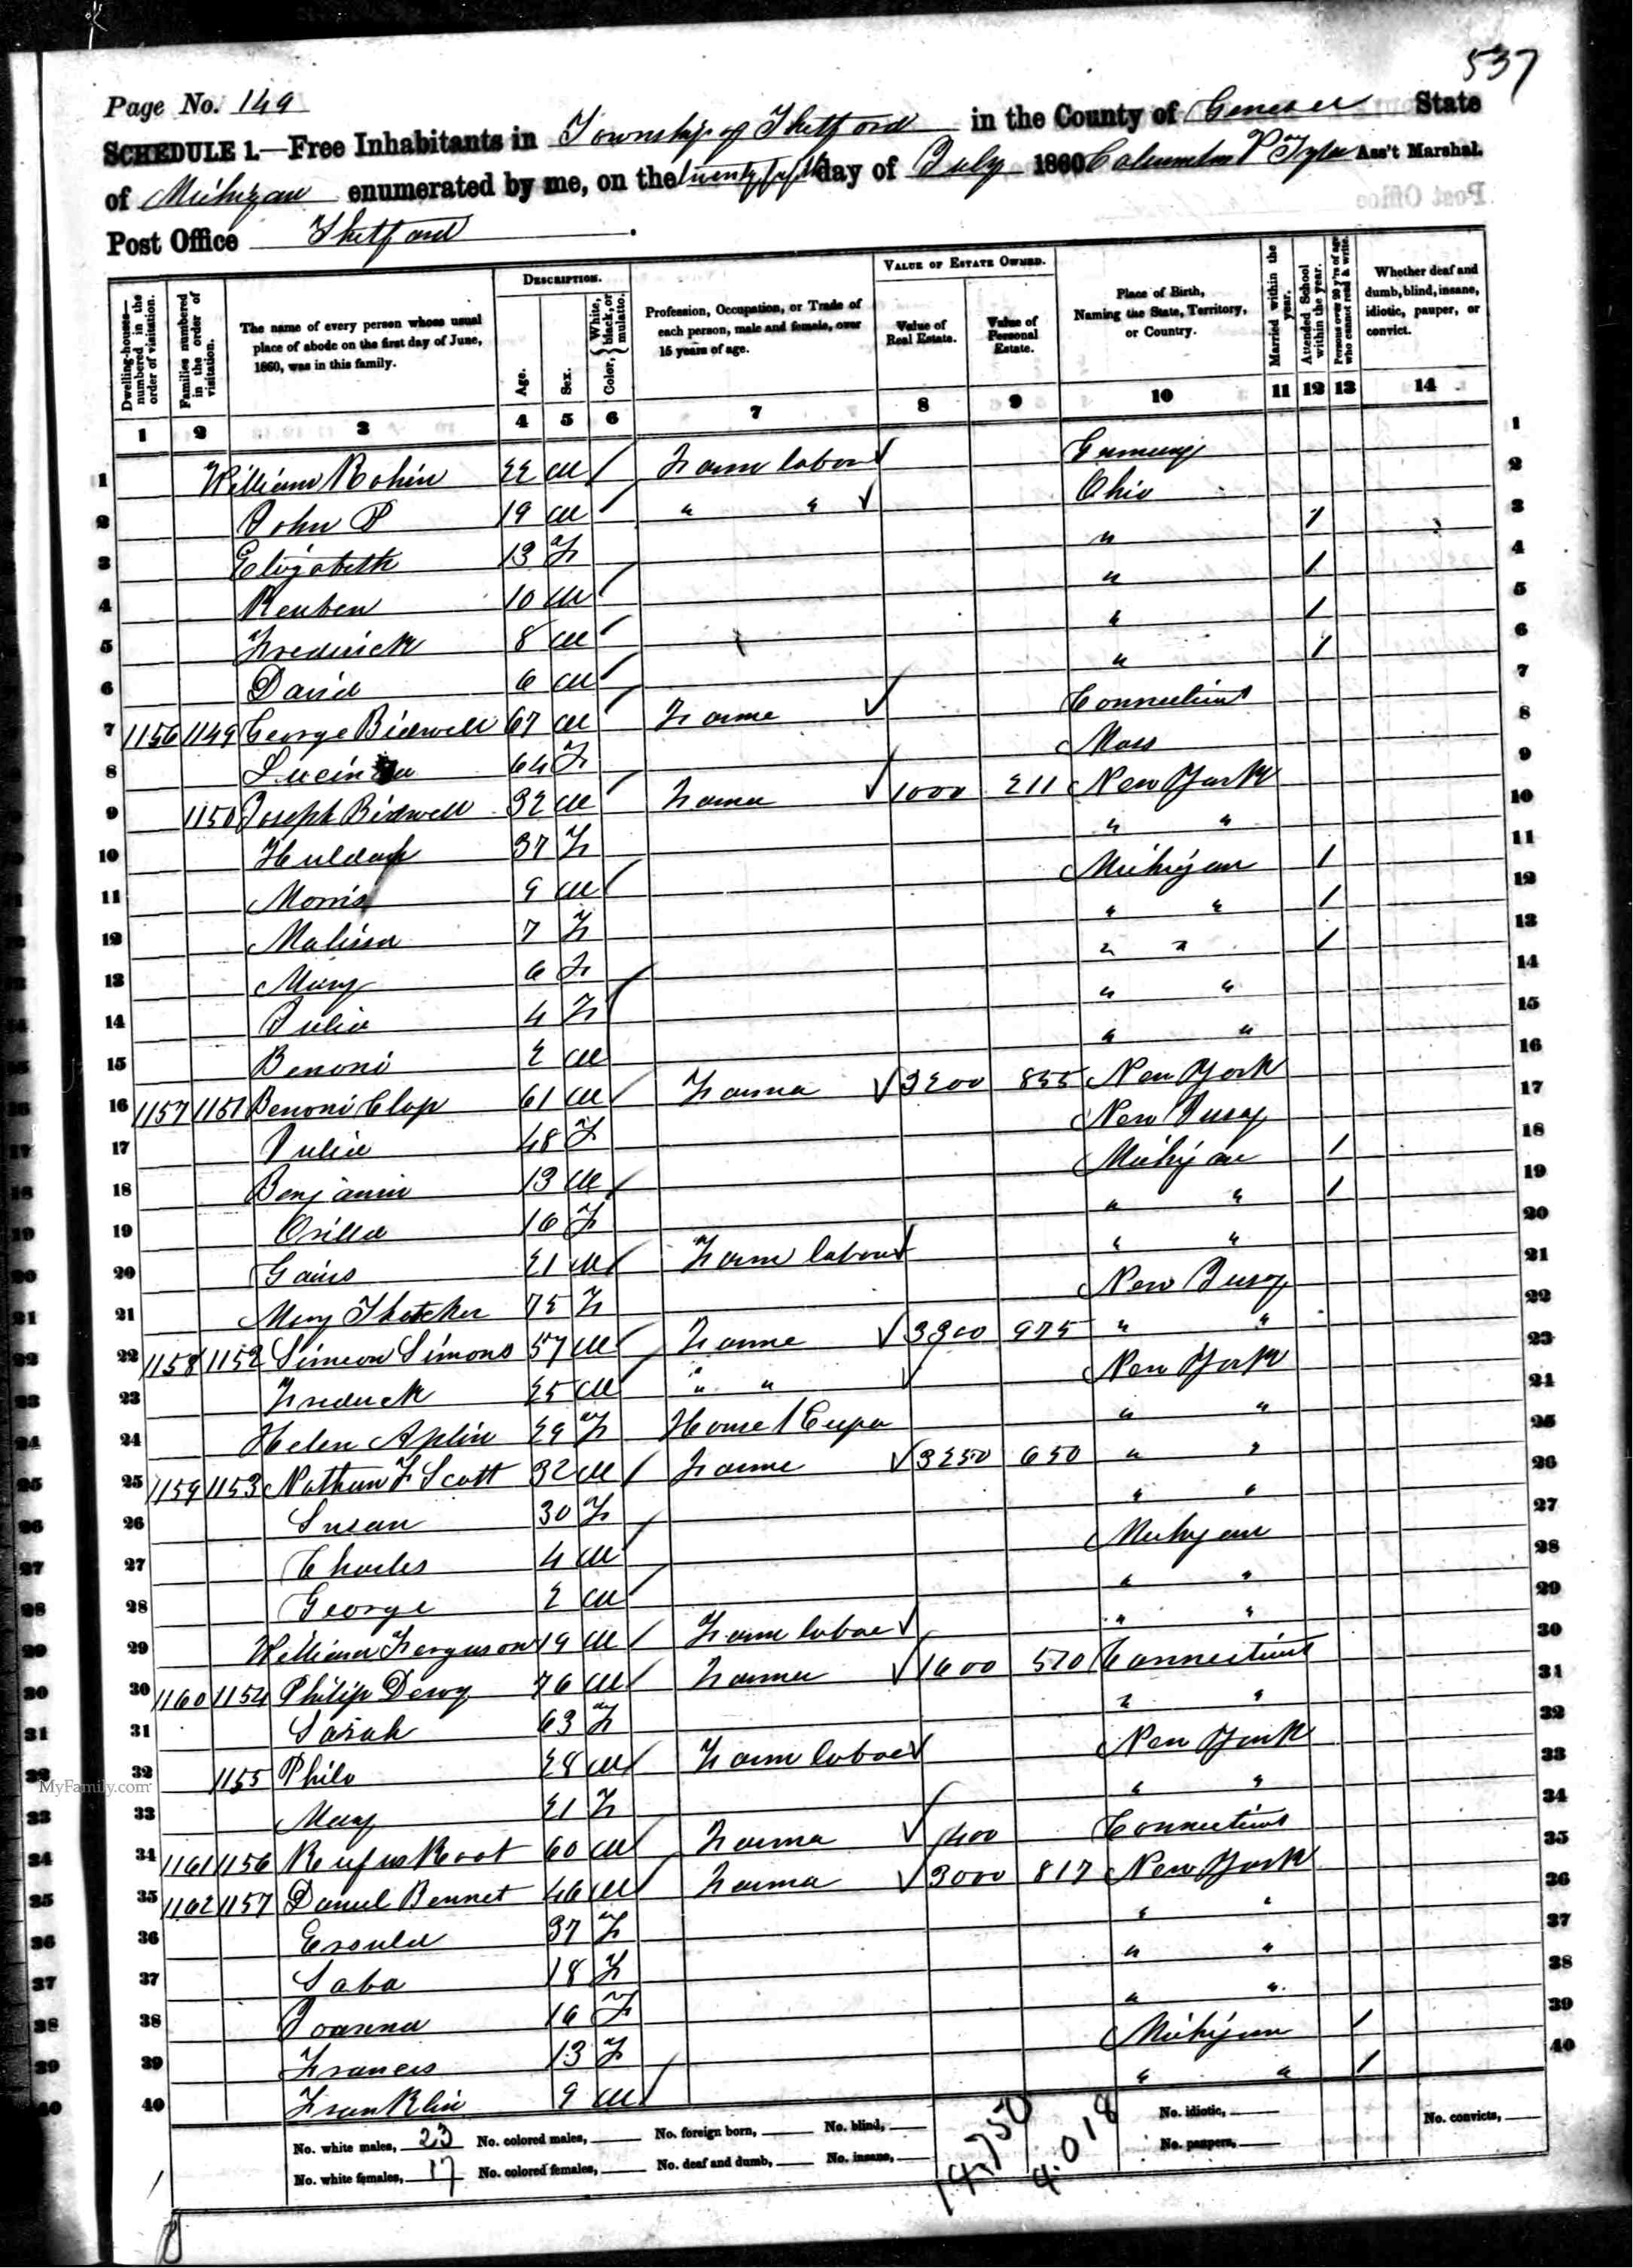 537
Page No. 149
SCHEDULE 1.—Free Inhabitants in Township of Thetford in the County of Genesee State
of Michigan enumerated by me, on the twenty fifth day of July 1860. Columbus P Tyler Ass't Marshal.
Post Office Thetford
Dwelling-houses—numbered in the order of visitation.
Families numbered in the order of visitation.
The name of every person whose usual place of abode on the first day of June, 1860, was in this family.
DESCRIPTION.
Age.
Sex.
Color, { White, black, or mulatto.
Profession, Occupation, or Trade of each person, male and female, over 15 years of age.
VALUE OF ESTATE OWNED.
Value of Real Estate.
Value of Personal Estate.
Place of Birth, Naming the State, Territory, or Country.
Married within the year.
Attended School within the year.
Persons over 20 y'rs of age who cannot read & write.
Whether deaf and dumb, blind, insane, idiotic, pauper, or convict.
1 2 3 4 5 6 7 8 9 10 11 12 13 14
1 William 22 M / Farm labor ✓ Germany 1
2 John P 19 M / " " ✓ Ohio 2
3 Elizabeth 13 F " / 3
4 Reuben 10 M / " / 4
5 Frederick 8 M / " / 5
6 David 6 M / " / 6
7 1156 1149 George Bidwell 67 M / Farme ✓ Connecticut 7
8 64 F Mass 8
9 1150 Joseph Bidwell 32 M / Farmer ✓ 1000 211 New York 9
10 Huldah 37 F " " 10
11 Morris 9 M / Michigan / 11
12 Malissa 7 F " " / 12
13 Mary 6 F " " / 13
14 Julia 4 F " " 14
15 Benoni 2 M " " 15
16 1157 1151 Benoni Clap 61 M / Farma ✓ 3200 855 New York 16
17 Julia 48 F New Jersey 17
18 Benjamin 13 M / Michigan / 18
19 Orilla 16 F " " / 19
20 Gaius 21 M / Farm labour ✓ " " 20
21 Mary Thatcher 75 F New Jersey 21
22 1158 1152 Simeon Simons 57 M / Farme ✓ 3300 975 " " 22
23 Fredrick 25 M / " " ✓ New York 23
24 Helen Aplin 29 F House Keepe " " 24
25 1159 1153 Nathan F Scott 32 M / Farme ✓ 3250 650 " " 25
26 Susan 30 F " " 26
27 Charles 4 M / Michigan 27
28 George 2 M / " " 28
29 William Ferguson 19 M / Farm labor ✓ " " 29
30 1160 1154 Philip Dewy 76 M / Farmer ✓ 1600 510 Connecticut 30
31 Sarah 63 F " " 31
32 1155 Philo 28 M / Farm labor ✓ New York 32
33 Mary 21 F " " 33
34 1161 1156 Rufus Root 60 M / Farma ✓ 400 Connecticut 34
35 1162 1157 Daniel Bennet 46 M / Farma ✓ 3000 817 New York 35
36 Ersula 37 F " " 36
37 Saba 18 F " " 37
38 Joanna 16 F " " 38
39 Francis 13 F Michigan / 39
40 Franklin 9 M / " " / 40
No. white males, 23 No. colored males, No. foreign born, No. blind, 14,750 4,018 No. idiotic, No. convicts,
No. white females, 17 No. colored females, No. deaf and dumb, No. insane, No. paupers,
MyFamily.com